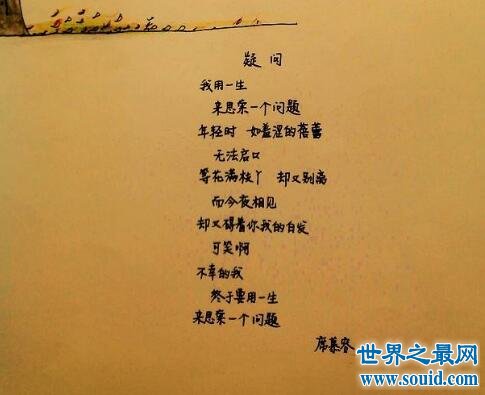 疑问
我用一生
来思索一个问题
年轻时 如羞涩的蓓蕾
无法启口
等花满枝丫 却又别离
而今夜相见
却又碍着你我的白发
可笑啊
不幸的我
终于要用一生
来思索一个问题
席慕容
世界之最网
www.souid.com